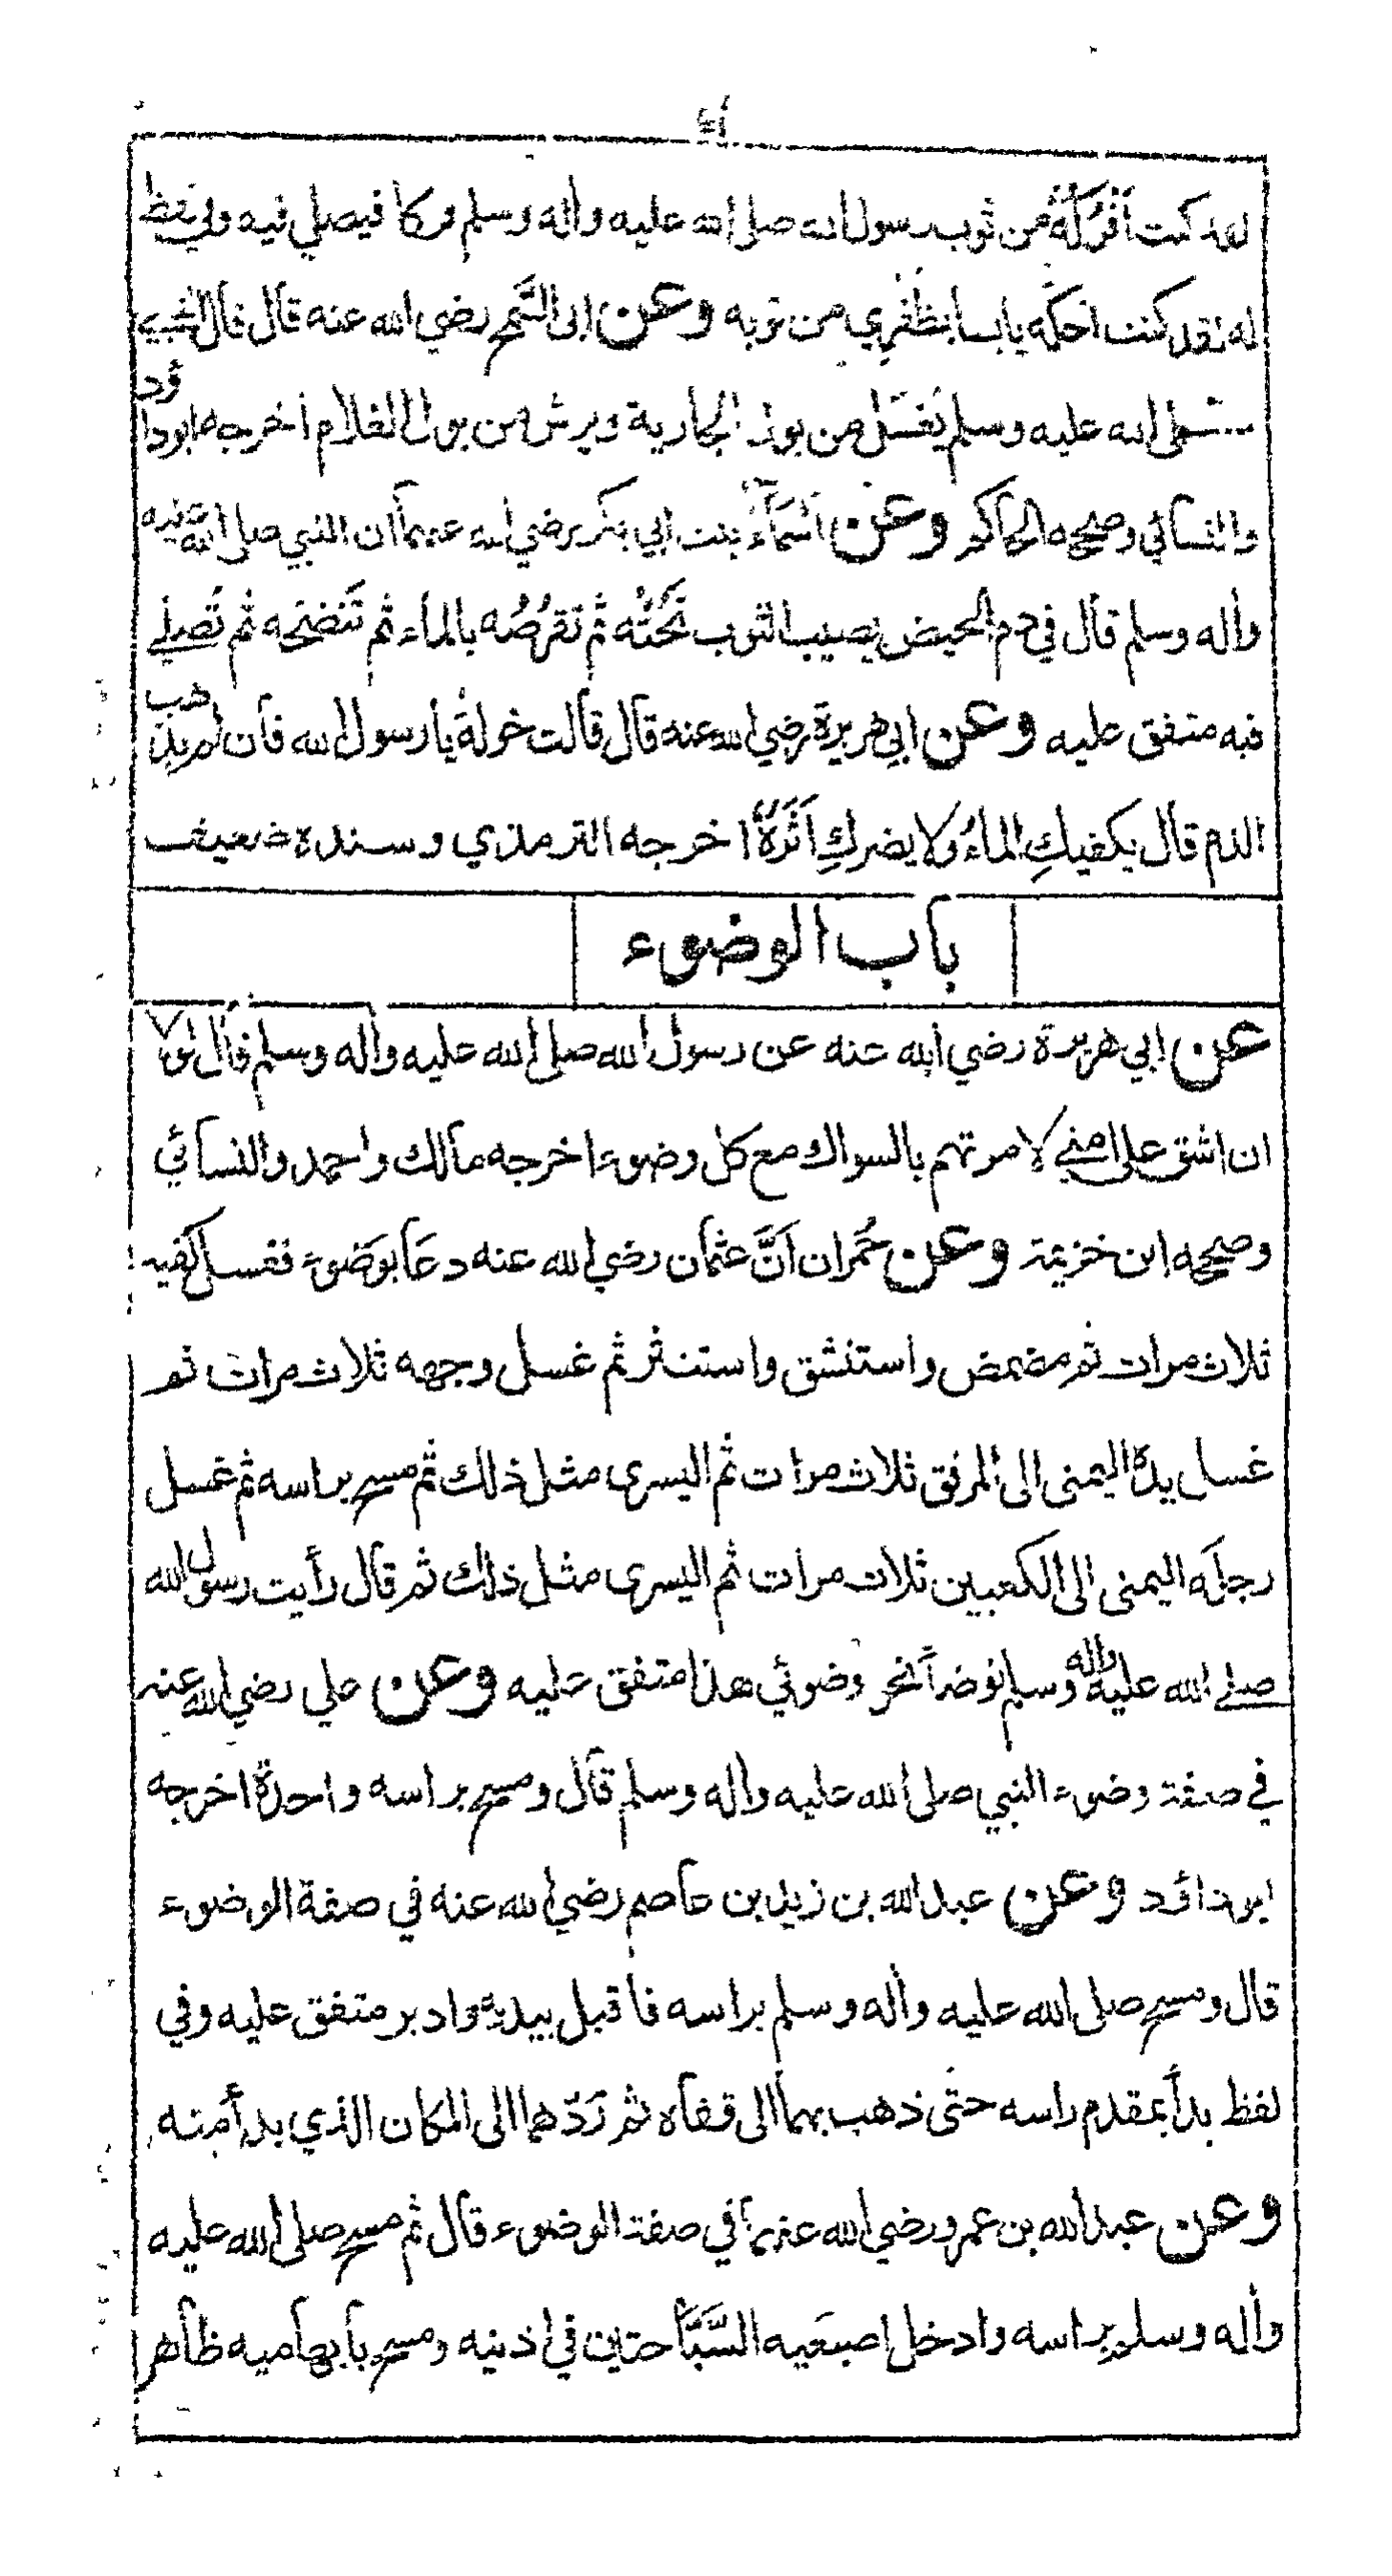 لقد كنت أفْرُكُهُ من ثوب رسول الله صلى الله عليه واله وسلم فركا فيصلي فيه وفي لفظ
له لقد كنت احكه يابسا بظُفُرِي من ثوبه وعن ابى السَّمح رضي الله عنه قال قال النبي
صلى الله عليه وسلم يُغسَل من بول الجارية ويرش من بول الغلام اخرجه ابوداؤد
والنسائي وصححه الحاكم وعن اَسْمَآءَ بنت ابي بكر رضي الله عنهما ان النبي صلى الله عليه
واله وسلم قال في دم الحيض يصيب الثوب تَحُتُّه ثم تَقرُصُه بالماء ثم تَنضَحه ثم تُصلي
فيه متفق عليه وعن ابي هريرة رضي الله عنه قال قالت خولة يا رسول الله فان لم يذهب
الدم قال يكفيكِ الماءُ ولا يضركِ اَثَرُهُ اخرجه الترمذي وسنده ضعيف
باب الوضوء
عن ابي هريرة رضي الله عنه عن رسول الله صلى الله عليه واله وسلم قال لولا
ان اشق على امتي لامرتهم بالسواك مع كل وضوء اخرجه مالك واحمد والنسائي
وصححه ابن خزيمة وعن حُمران اَنَّ عثمان رضي الله عنه دعَا بوَضوء فغسل كفيه
ثلاث مرات ثم مضمض واستنشق واستنثر ثم غسل وجهه ثلاث مرات ثم
غسل يده اليمنى الى المرفق ثلاث مرات ثم اليسرى مثل ذلك ثم مسح براسه ثم غسل
رجله اليمنى الى الكعبين ثلاث مرات ثم اليسرى مثل ذلك ثم قال رأيت رسول الله
صلى الله عليه واله وسلم توضأ نحو وضوئي هذا متفق عليه وعن علي رضي الله عنه
في صفة وضوء النبي صلى الله عليه واله وسلم قال ومسح براسه واحدة اخرجه
ابو داؤد وعن عبد الله بن زيد بن عاصم رضي الله عنه في صفة الوضوء
قال ومسح صلى الله عليه واله وسلم براسه فاقبل بيديه وادبر متفق عليه وفي
لفظ بدأ بمقدم راسه حتى ذهب بهما الى قفاه ثم رَدّهما الى المكان الذي بدأ منه
وعن عبد الله بن عمرو رضي الله عنهما في صفة الوضوء قال ثم مسح صلى الله عليه
واله وسلم براسه وادخل اصبعَيه السَّبَّاحتين في اذنيه ومسح بابهاميه ظاهر